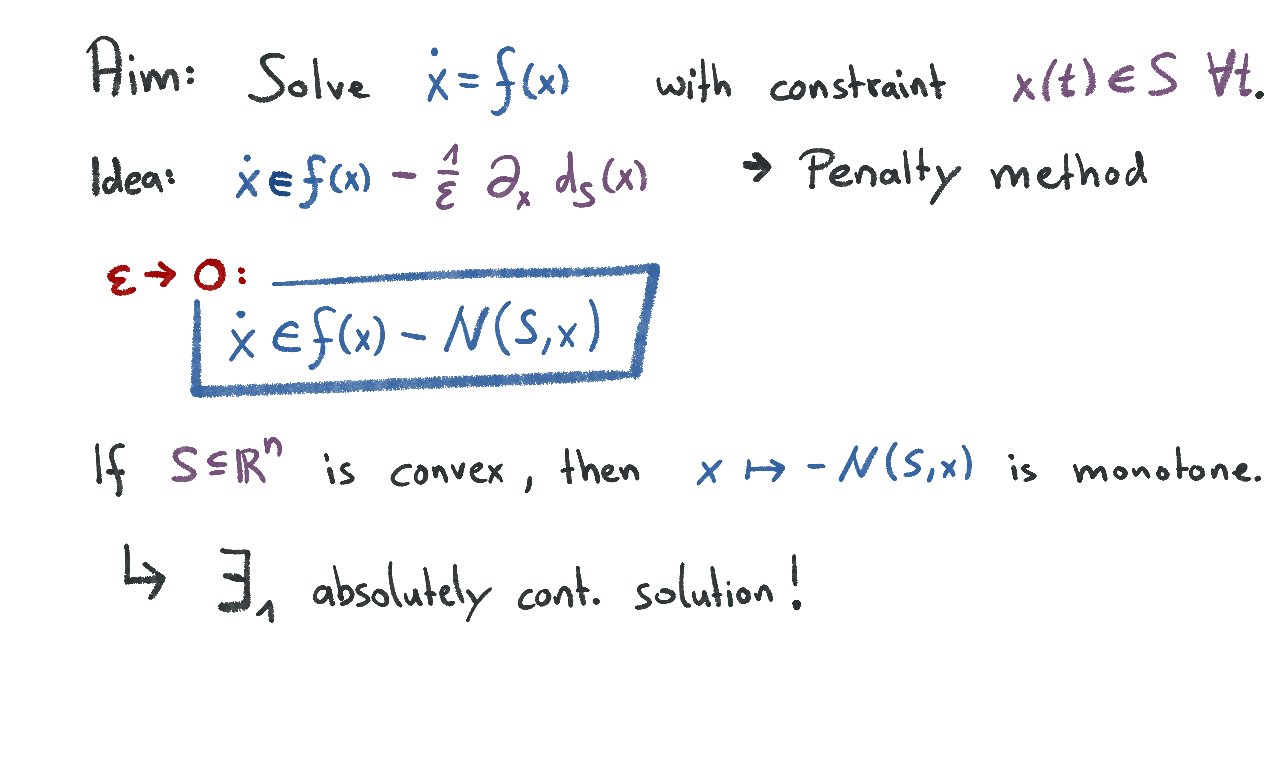 Aim: Solve ẋ = f(x) with constraint x(t) ∈ S ∀t.
Idea: ẋ ∈ f(x) - 1/ε ∂ₓ d_S(x) → Penalty method
ε → 0:
ẋ ∈ f(x) - N(S,x)
If S ⊆ ℝⁿ is convex, then x ↦ -N(S,x) is monotone.
↳ ∃₁ absolutely cont. solution!